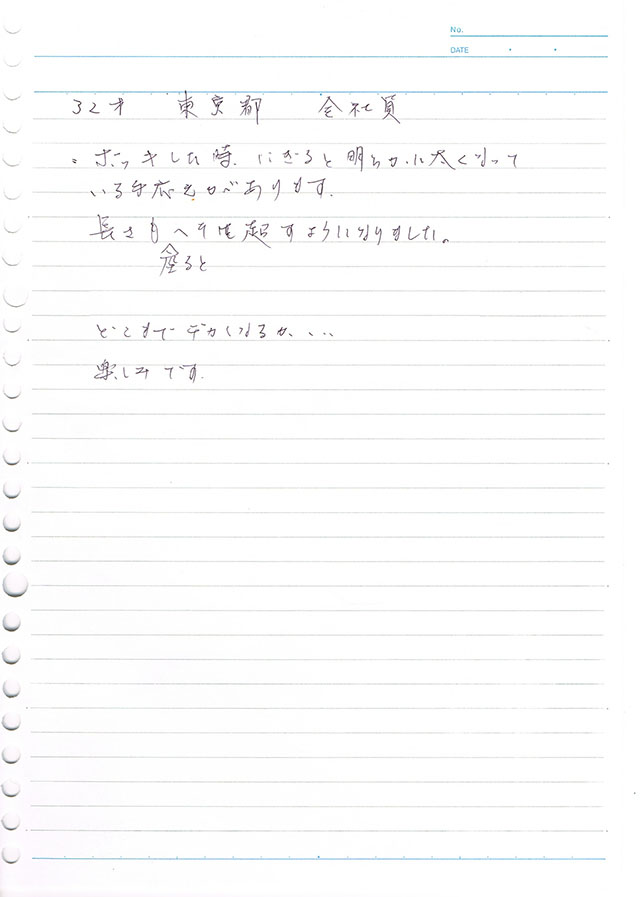 No.
DATE
32才 東京都 会社員
。ボッキした時、にぎると明らかに太くなって
いる手応えがあります。
長さもヘソを超すようになりました。
座ると
どこまでデカくなるか、...
楽しみです。